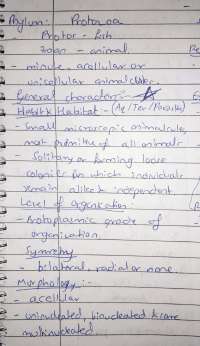 Phylum: Protozoa
- Protos - fish
zoan - animal.
- minute, acellular or
unicellular animalcules.
General characters:-
Habit & Habitat - (Aq/Ter/Parasite)
- Small microscopic animalcules,
most primitive of all animals
- Solitary or forming loose
colonies in which individuals
remain alike & independent
Level of organisation:-
- Protoplasmic grade of
organisation
Symmetry
- bilateral, radial or none.
Morphology:-
- acellular
- uninucleated, binucleated & some
multinucleated.